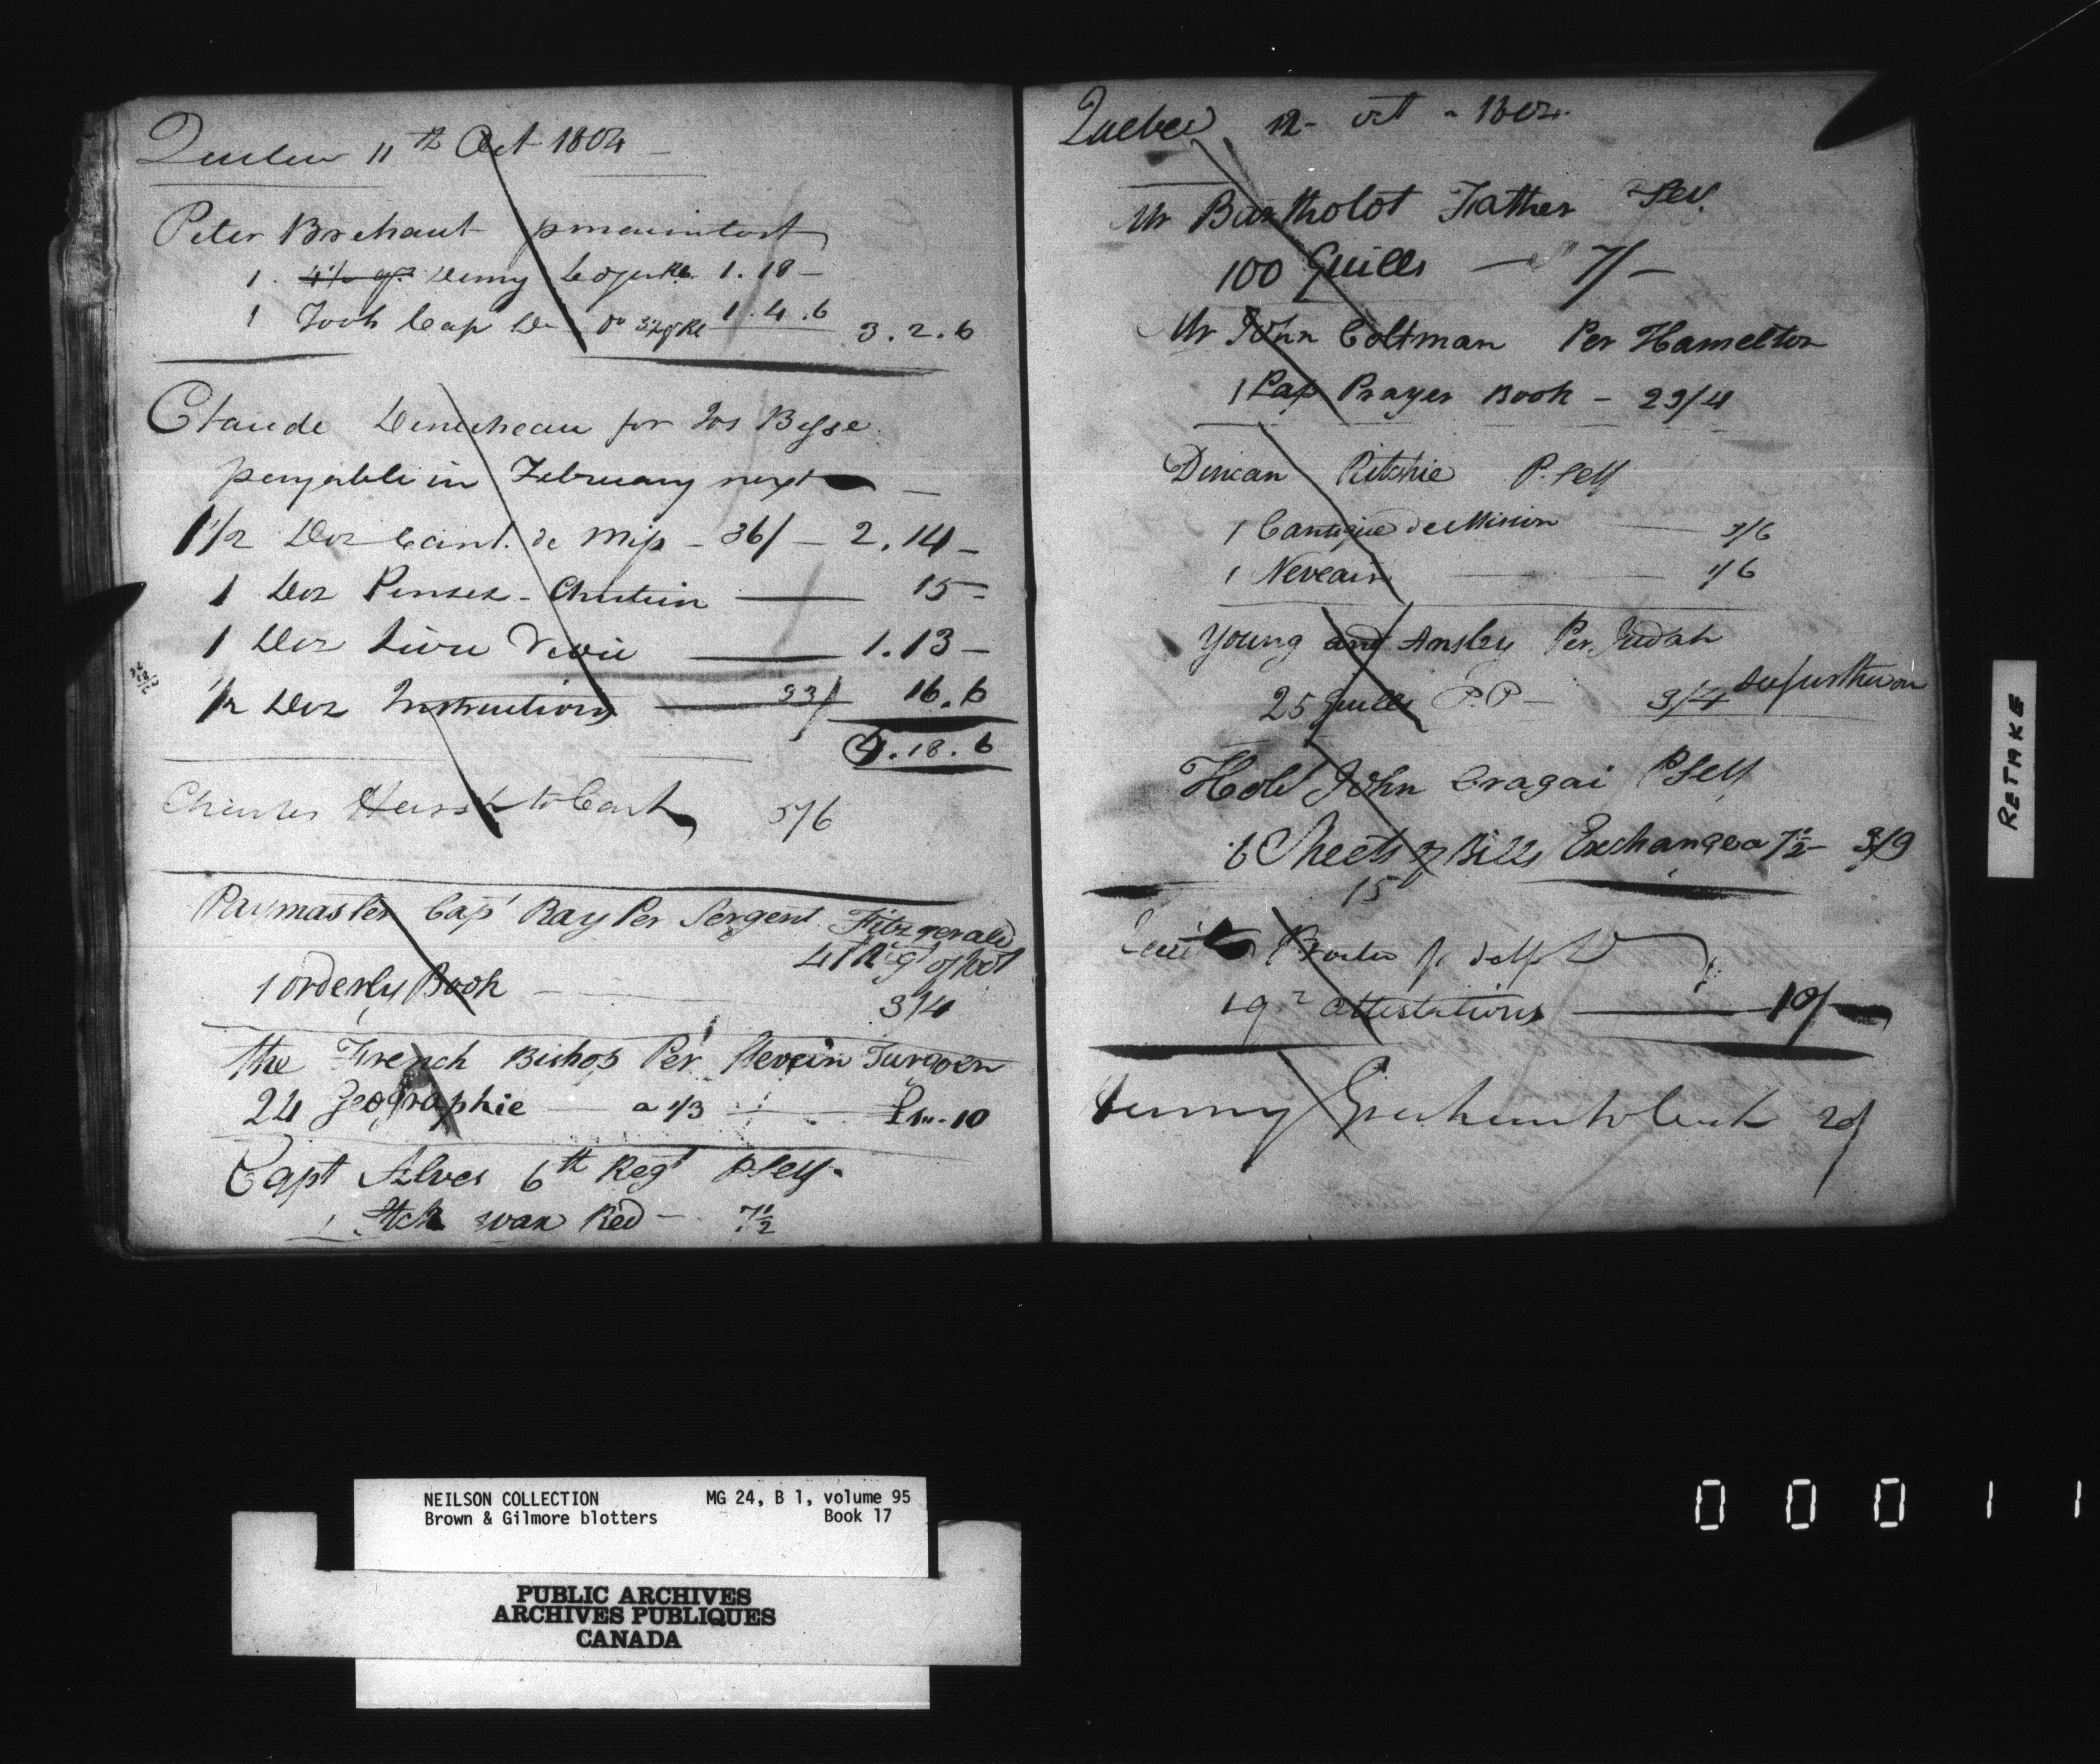 Quebec 11th Oct 1804
Peter Brehaut
1 Demy 1.18-
1 Foolscap 1.4.6 3.2.6
Claude Denecheau for Jos Bysse
payable in February next
1 1/2 Doz Cant. de Miss - 36/ - 2.14-
1 Doz Penses - Chretien 15-
1 Doz Livre de vie 1.13-
1/2 Doz Instructions 33/ 16.6
18.6
Charles to Cash 5/6
Paymaster Capt Ray Per Sergent Fitzgerald
41 Regt of foot
1 orderly Book 3/4
the French Bishop Per Turgoen
24 Geographie a 1/3 10
Capt Alves 6th Regt P Self
1 Stck wax Red - 7 1/2
Quebec 12 - oct - 1804.
Mr Bartholot Father Self
100 Quills 7/-
Mr John Coltman Per Hamelton
1 Prayer Book - 23/4
Duncan Ritchie P. Self
1 Cantique de Mision 3/6
1 Neveain 1/6
Young and Ansley Per Judah
25 Quills P.P - 3/4 see further on
Holb John Cragai P Self
6 Sheets of Bills Exchange a 7 1/2 3/9
15
p Self
1 qr attestations 10/-
to Cash 20/
RETAKE
NEILSON COLLECTION MG 24, B 1, volume 95
Brown & Gilmore blotters Book 17
PUBLIC ARCHIVES
ARCHIVES PUBLIQUES
CANADA
00011